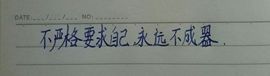 DATE: / / NO:
不严格要求自己,永远不成器.